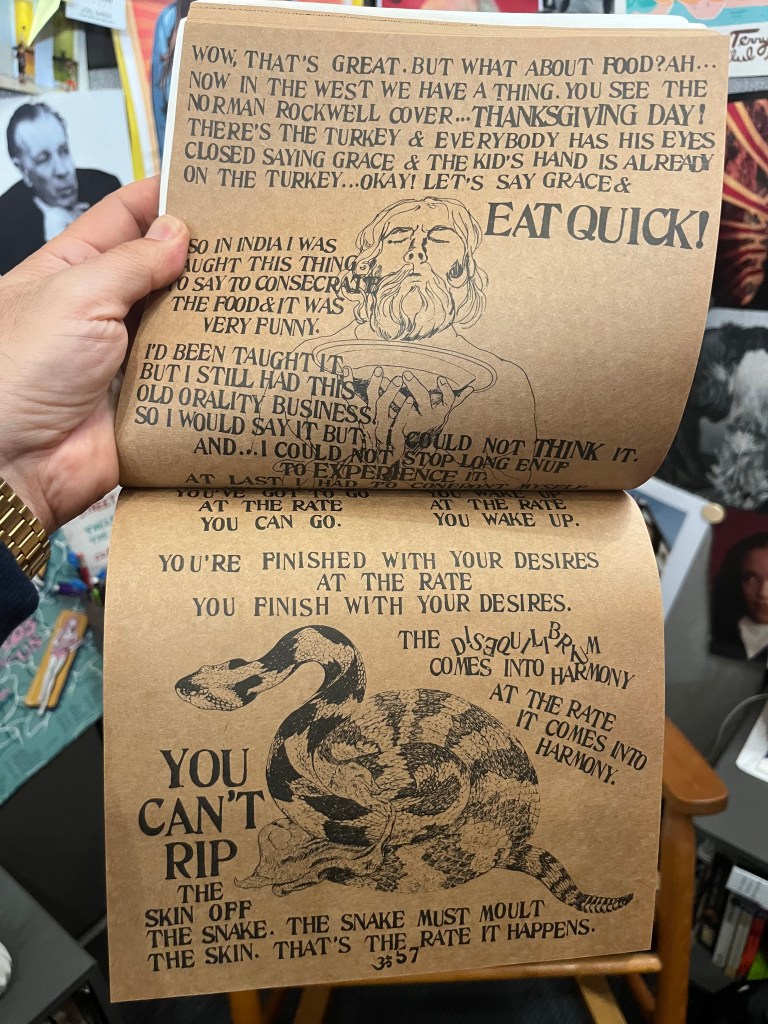 WOW, THAT'S GREAT. BUT WHAT ABOUT FOOD? AH...
NOW IN THE WEST WE HAVE A THING. YOU SEE THE
NORMAN ROCKWELL COVER...THANKSGIVING DAY!
THERE'S THE TURKEY & EVERYBODY HAS HIS EYES
CLOSED SAYING GRACE & THE KID'S HAND IS ALREADY
ON THE TURKEY...OKAY! LET'S SAY GRACE &
EAT QUICK!
SO IN INDIA I WAS
AUGHT THIS THING
TO SAY TO CONSECRATE
THE FOOD & IT WAS
VERY FUNNY.
I'D BEEN TAUGHT IT
BUT I STILL HAD THIS
OLD ORALITY BUSINESS.
SO I WOULD SAY IT BUT... I COULD NOT THINK IT.
AND...I COULD NOT STOP LONG ENUF
TO EXPERIENCE IT.
AT LAST I HAD TO
YOU'VE GOT TO GO
AT THE RATE
YOU CAN GO.
YOU WAKE UP
AT THE RATE
YOU WAKE UP.
YOU'RE FINISHED WITH YOUR DESIRES
AT THE RATE
YOU FINISH WITH YOUR DESIRES.
THE DISEQUILIBRIUM
COMES INTO HARMONY
AT THE RATE
IT COMES INTO
HARMONY.
YOU
CAN'T
RIP
THE
SKIN OFF
THE SNAKE. THE SNAKE MUST MOULT
THE SKIN. THAT'S THE RATE IT HAPPENS.
ॐ 57
Terry